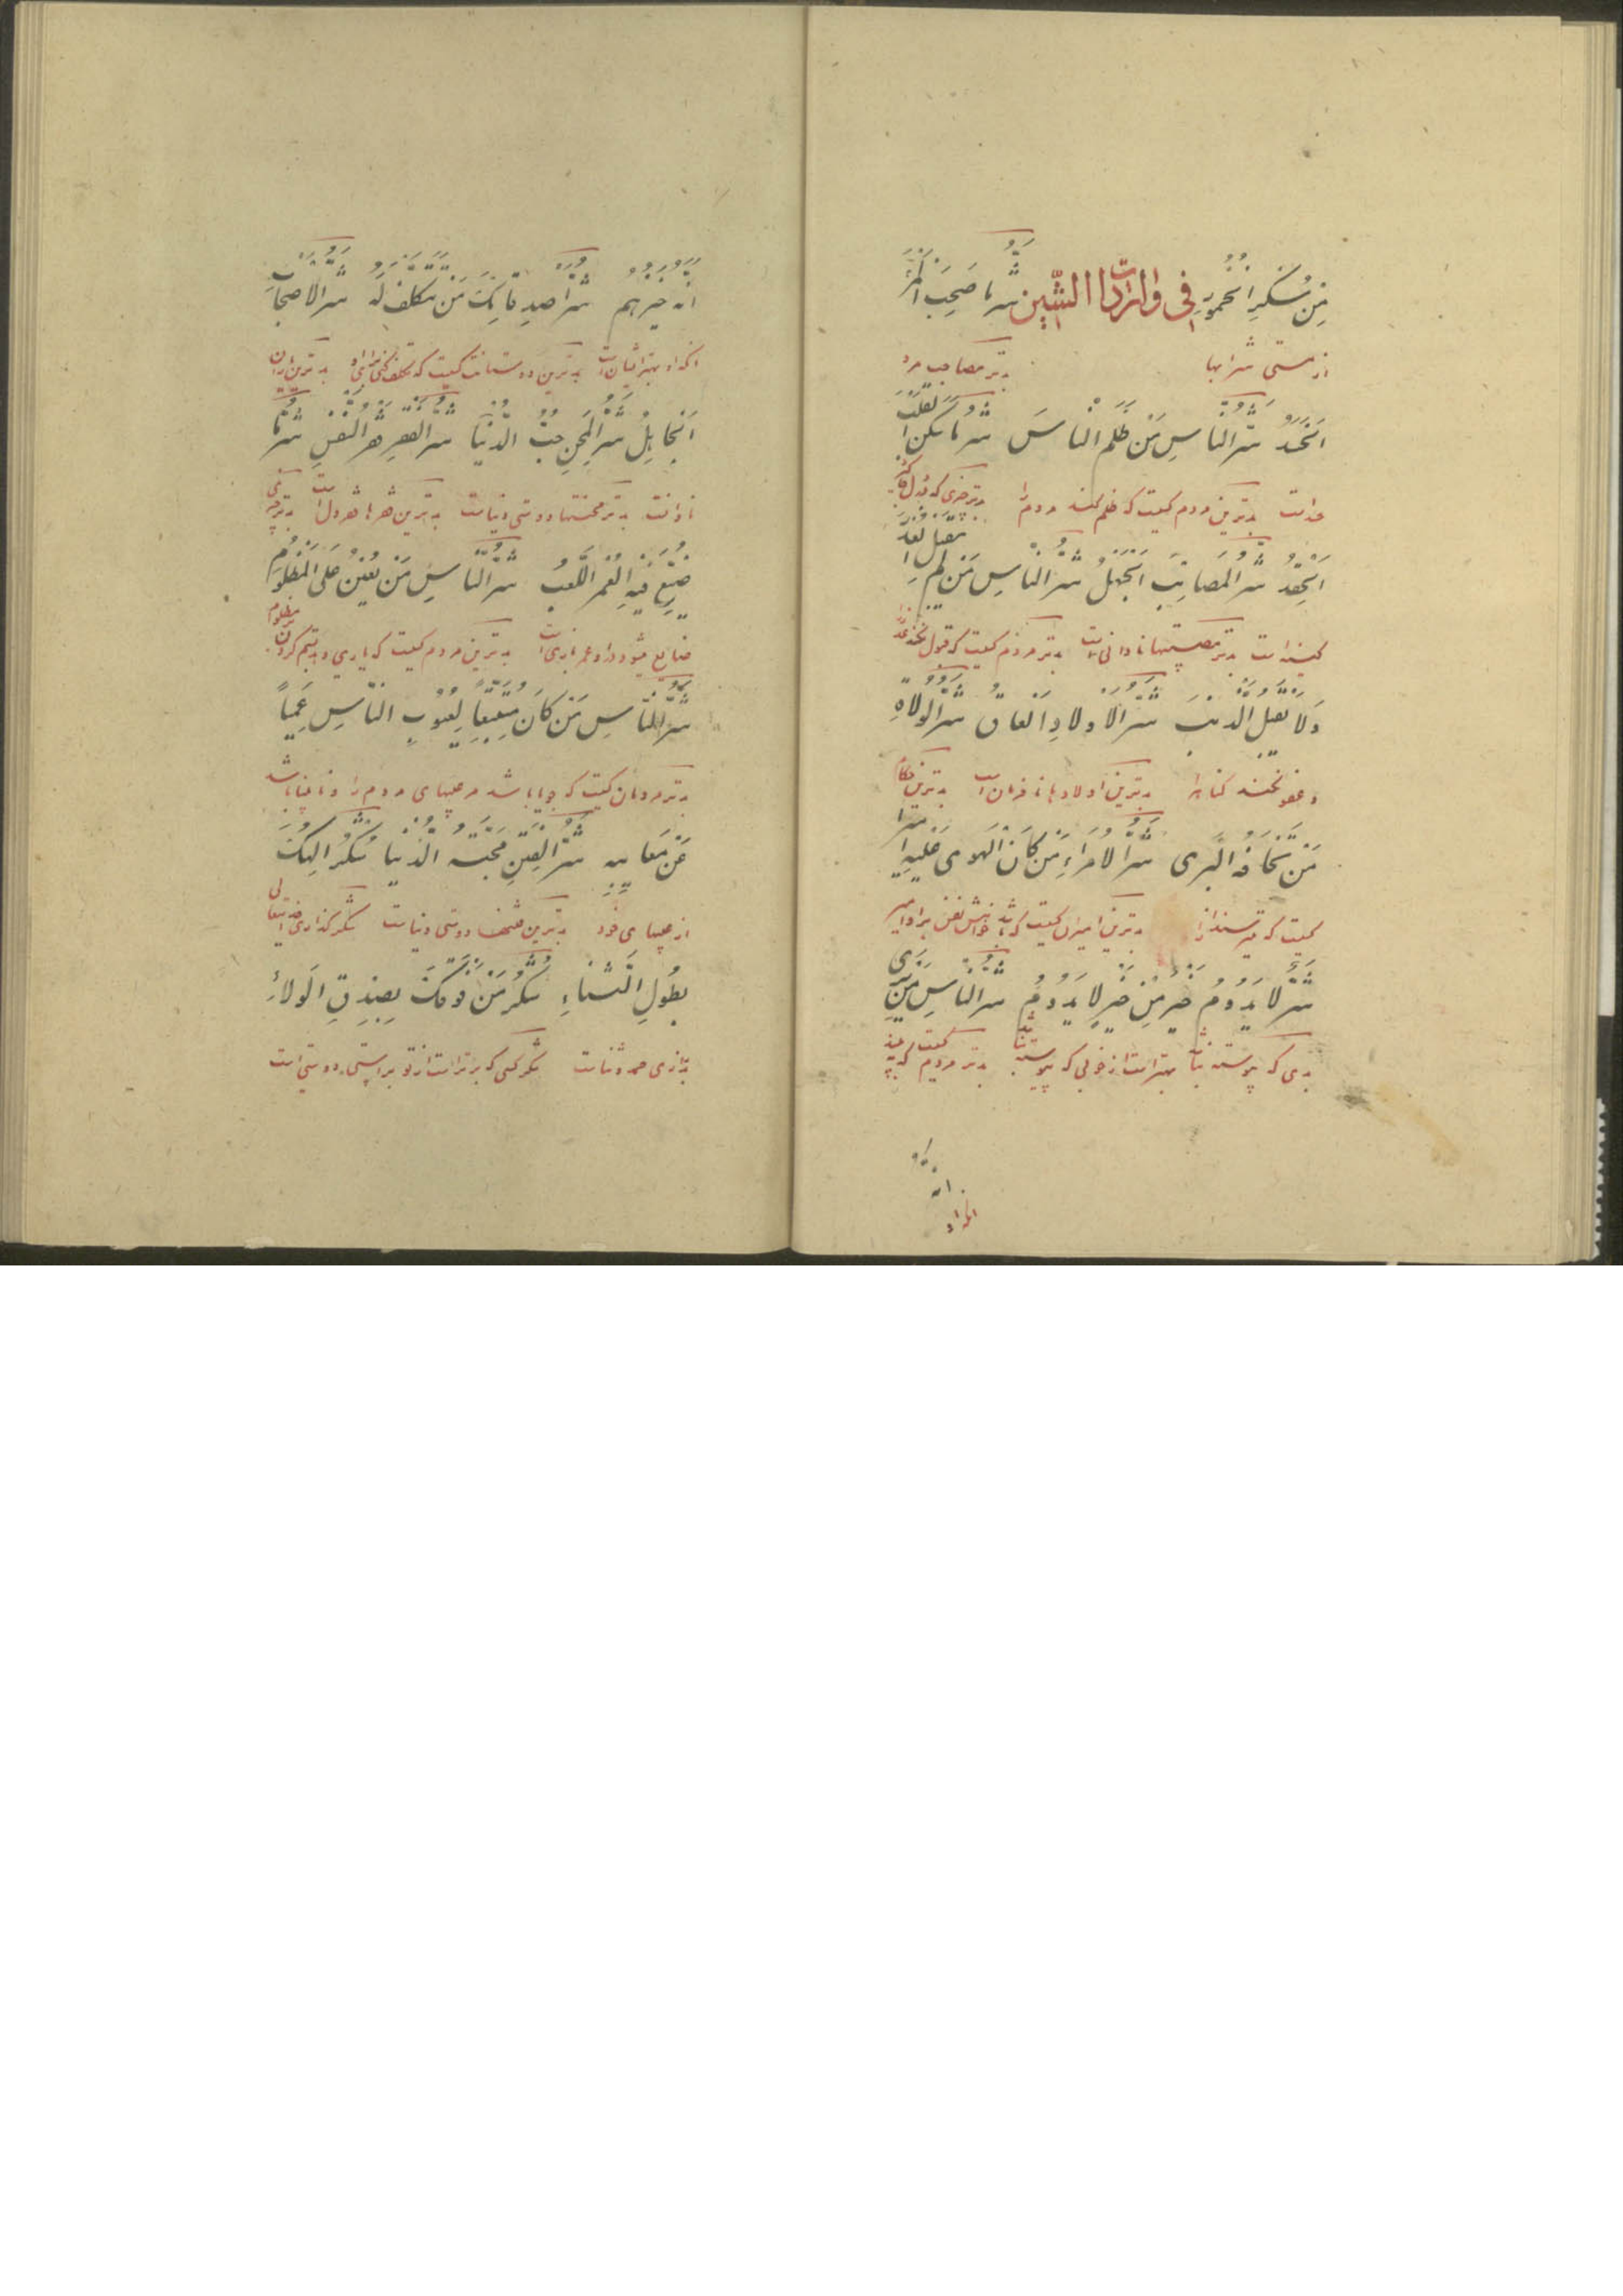 مِن سُکرِ الخُمُورِ فی واردات الشّین شَرُّ ما صَحِبَ المَرْءَ
از مستی شرابها بدتر مصاحب مرد
الحَسَدُ شَرُّ النّاسِ مَن ظَلَمَ النّاسَ شَرُّ ما سَکَنَ القَلبَ
بدترین مردم کسیت که ظلم کند مردم را بدتر چیزی که در دل
الحِقدُ شَرُّ المَصائِبِ الجَهلُ شَرُّ النّاسِ مَن لم یَقبَلِ العُذرَ
کینه است بدتر مصیبتها نادانی است بدتر مردم کسیت که قبول نکند عذر
وَلا یُقیلُ الذَّنبَ شَرُّ الاَولادِ العاقُّ شَرُّ الوُلاةِ
و عفو نکند کناه را بدترین اولادها نافرمان است بدترین حکام
مَن یَخافُهُ البَری شَرُّ الاُمَراءِ مَن کانَ الهوی عَلَیهِ امیرا
کسیت که بترسند از بدترین امیران کسیت که باشد خواهش نفس بر او امیر
شَرٌّ لا یَدُومُ خَیرٌ مِن خَیرٍ لا یَدُومُ شَرُّ النّاسِ مَن یَری
بدی که پیوسته نباشد بهتر است از خوبی که پیوسته نباشد بدتر مردم کسیت که بیند
انه
انکه او
اَنَّهُ خَیرُهُم شَرُّ اَصدِقائِکَ مَن تَتَکَلَّفُ لَهُ شَرُّ الاَصحابِ
انکه او بهتر ایشان است بدترین دوستانت کسیت که تکلف کنی برای او بدترین یاران
الجاهِلُ شَرُّ المِحَنِ حُبُّ الدُّنیا شَرُّ الفَقرِ فَقرُ النَّفسِ شَرُّ ما
نادانست بدتر محنتها دوستی دنیاست بدترین فقرها فقر دل است بدتر چیزی
ضُیِّعَ فیهِ العُمرُ اللَّعبُ شَرُّ النّاسِ مَن یُعینُ عَلَی المَظلُومِ
ضایع میشود در او عمر بازی است بدترین مردم کسیت که یاری دهد بستم کردن بر مظلوم
شَرُّ النّاسِ مَن کانَ مُتَتَبِّعاً لِعُیُوبِ النّاسِ عَمِیّاً
بدتر مردمان کسیت که جویا باشد مر عیبهای مردم را و نابینا باشد
عَن مَعایِبِه شَرُّ الفِتَنِ مَحَبَّةُ الدُّنیا شُکرُ اِلهِکَ
از عیبهای خود بدترین فتنها دوستی دنیاست شکر گذاری خدایتعالی
بِطُولِ الثَّناءِ شُکرُ مَن فَوقَکَ بِصِدقِ الوَلاءِ
بدرازی حمد و ثناست شکر کسی که برتر است از تو براستی دوستی است